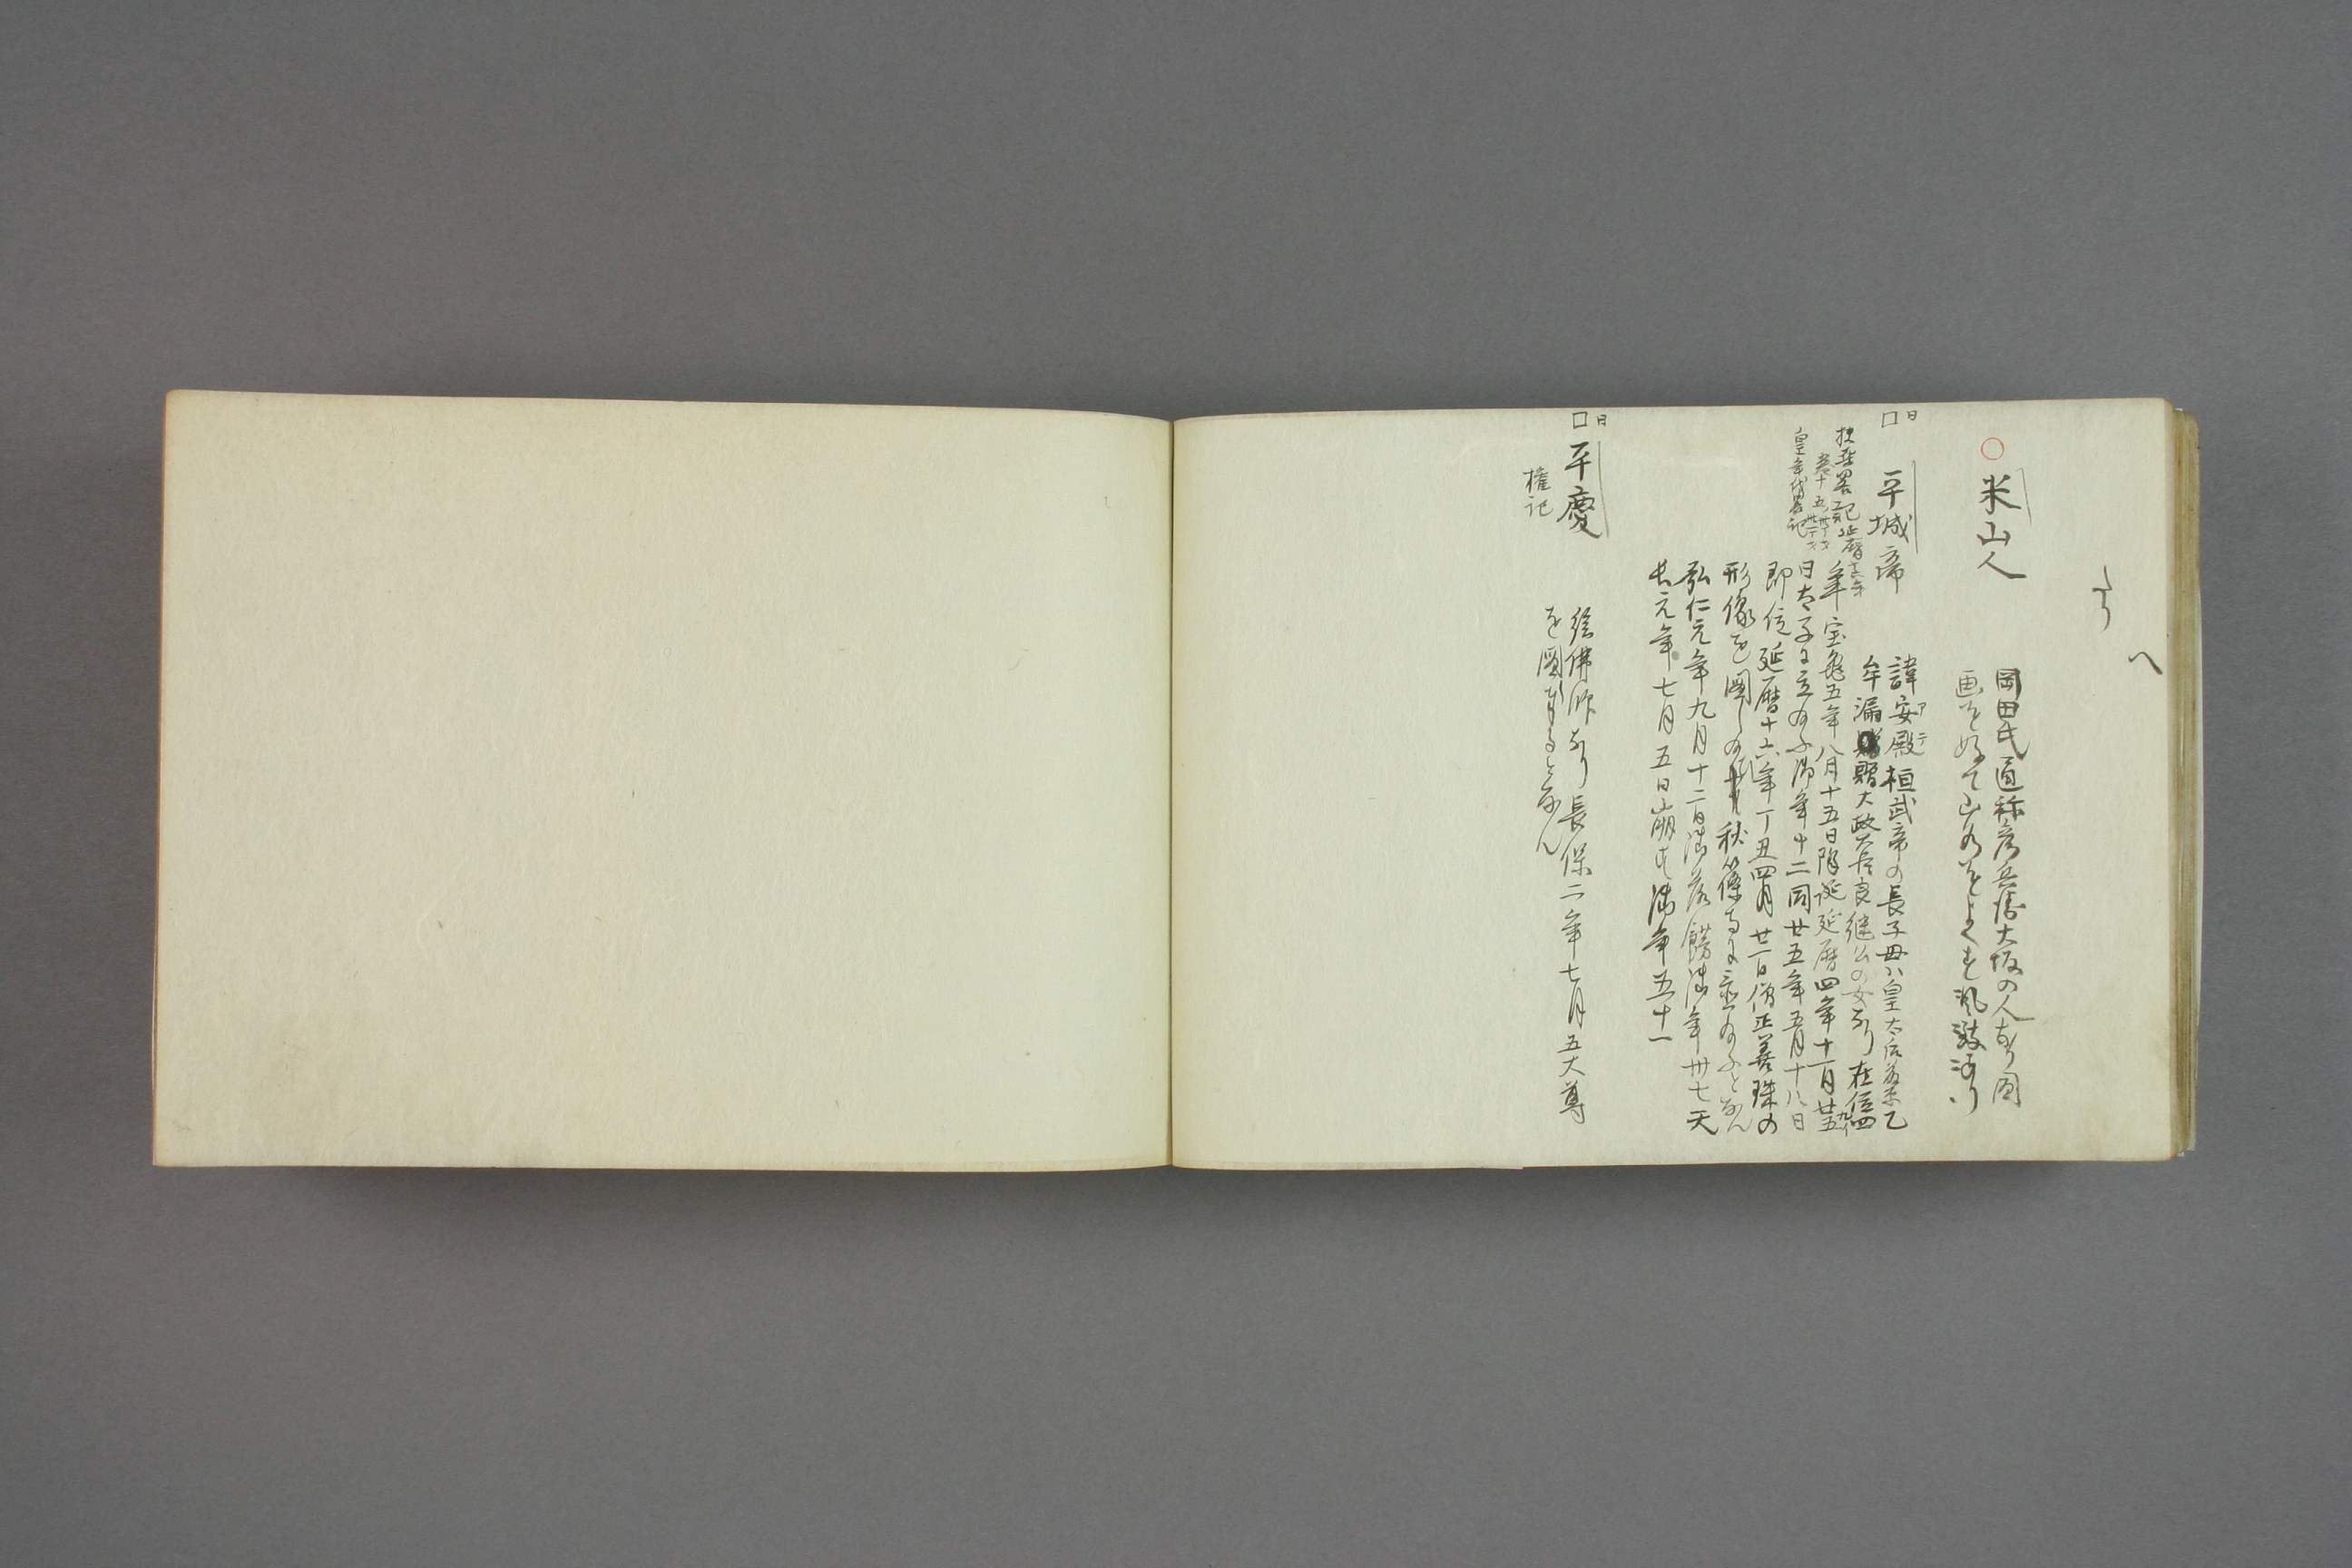 へ
米山人
岡田氏通称彦兵衛大坂の人なり図
画を好て山水をよくす風致あり
日
平城帝
扶桑畧記延暦十六年
皇年代畧記
諱安殿桓武帝の長子母ハ皇太后藤原乙
アテ
牟漏贈大政大臣良継公の女なり在位四
年宝亀五年八月十五日降誕延暦四年十一月廿五
日太子に立給ふ御年十二同廿五年五月十八日
即位延暦十六年丁丑四月廿一日僧正善珠の
形像を図し給ひ秋篠寺に安給ふとなん
弘仁元年九月十二日御落餝御年卅七天
長元年七月五日崩す御年五十一
日
平慶
権記
絵佛師なり長保二年七月五大尊
を図するとなん